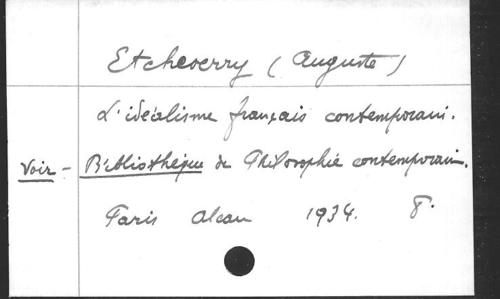 Etcheverry (Auguste)
L'idéalisme français contemporain.
Voir - Bibliothèque de Philosophie contemporain.
Paris Alcan 1934. 8°.